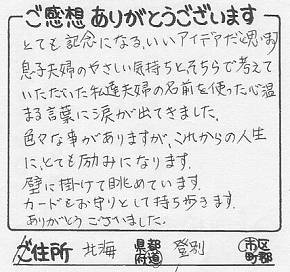 ご感想ありがとうございます
とても記念になる、いいアイデアだと思います
息子夫婦のやさしい気持ちとそちらで考えて
いただいた私達夫婦の名前を使った心温
まる言葉に涙が出てきました。
色々な事がありますが、これからの人生
に、とても励みになります。
壁に掛けて眺めています。
カードをお守りとして持ち歩きます。
ありがとうございました。
ご住所 北海 都道府県 登別 市区町郡